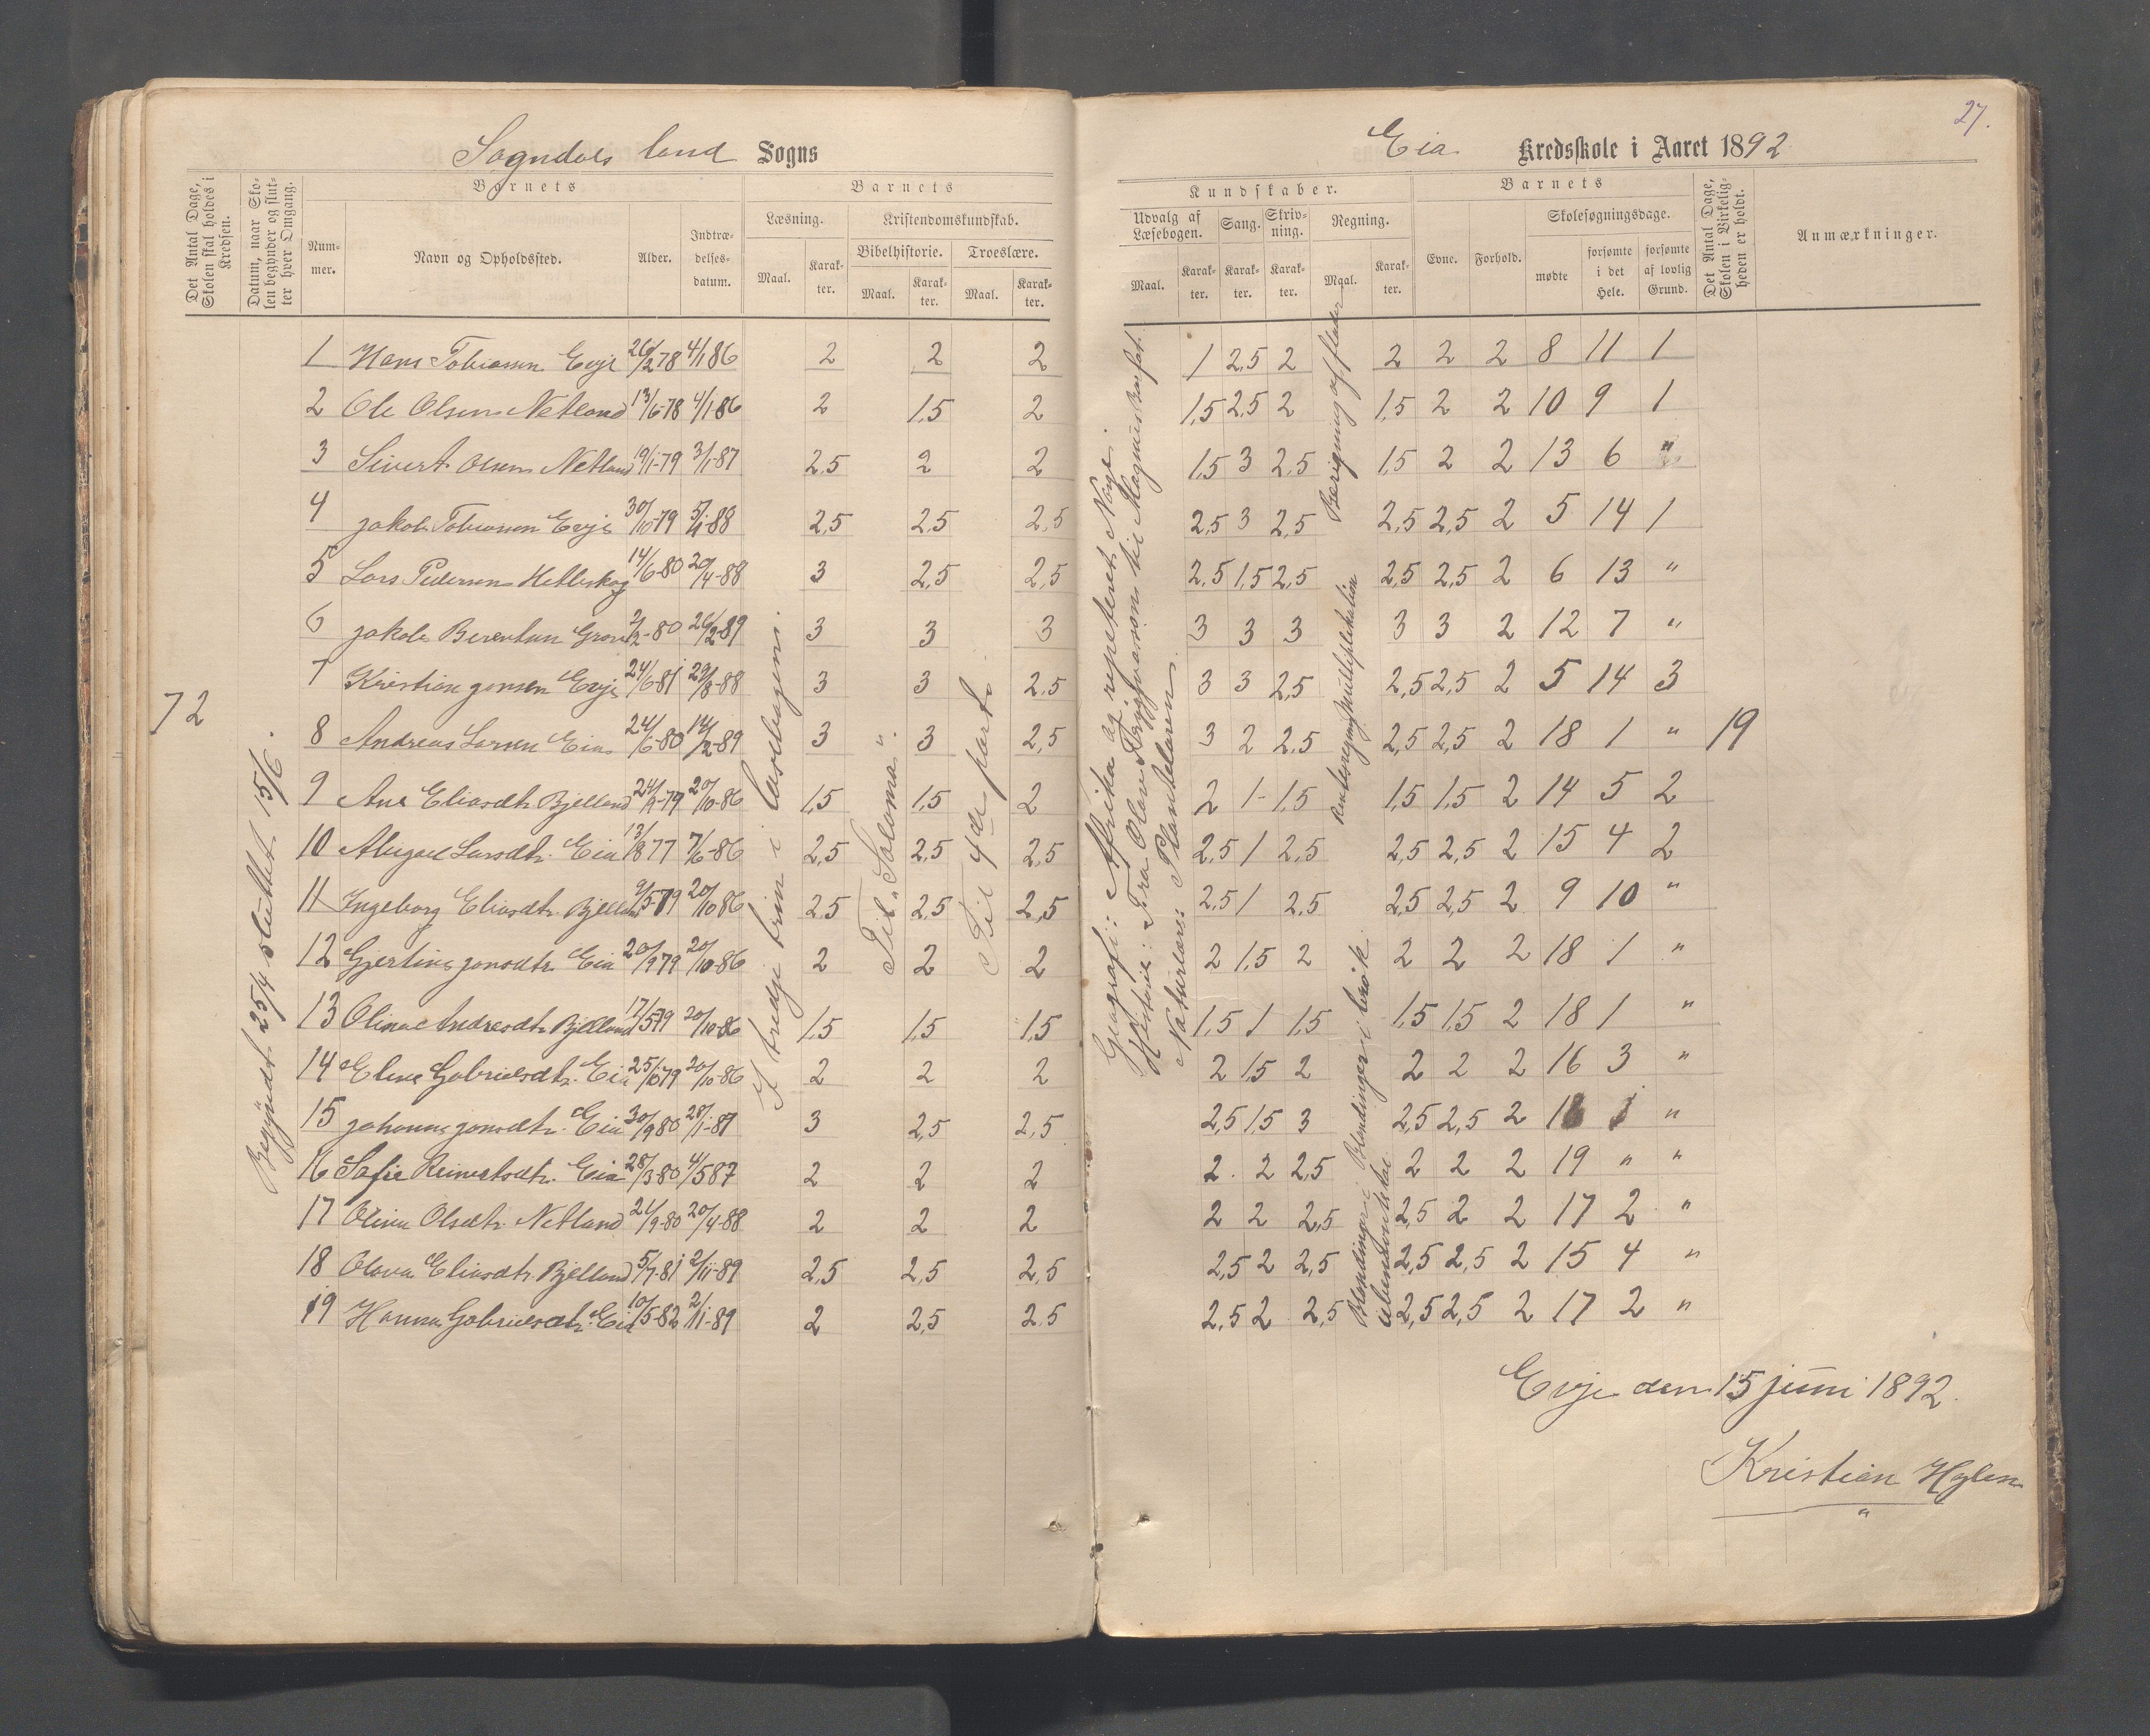 Sogndals land Sogns
Det Antal Dage, Skolen skal holdes i Kredsen.
Datum, naar Skolen begynder og slutter hver Omgang.
Barnets
Nummer.
Navn og Opholdssted.
Alder.
Indtrædelsesdatum.
Barnets
Læsning.
Maal.
Karakter.
Kristendomskundskab.
Bibelhistorie.
Maal.
Karakter.
Troeslære.
Maal.
Karakter.
72
Begyndt 25/4 sluttet 15/6.
I tredje trin i læsebogen.
Til "Salomo".
Til 4de part.
1 Hans Tobiassen Evje 26/2 78 4/1 86 2 2 2
2 Ole Olsen Netland 13/6-78 4/1-86 2 1,5 2
3 Sivert Olsen Netland 19/1-79 3/1-87 2,5 2 2
4 Jakob Tobiassen Evje 30/10-79 5/1-88 2,5 2,5 2,5
5 Lars Pedersen Hetleskog 14/6-80 20/4-88 3 2,5 2,5
6 Jakob Berentsen 2/2-80 26/2-89 3 3 3
7 Kristian Jonsen Evje 24/6-81 29/8-88 3 3 2,5
8 Andreas Larsen Eia 24/6-80 14/2-89 3 3 2,5
9 Ane Eliasdtr. Bjelland 24/9-79 20/10-86 1,5 1,5 2
10 Abigael Larsdtr. Eia 13/8 77 7/6-86 2,5 2,5 2,5
11 Ingeborg Eliasdtr. Bjelland 9/5-79 20/10 86 2,5 2,5 2,5
12 Gjertine Jonsdtr. Eia 20/9 79 20/10-86 2 2 2
13 Oline Andreasdtr. Bjelland 17/5 79 20/10-86 1,5 1,5 1,5
14 Elene Gabrielsdtr. Eia 25/10 79 20/10-86 2 2 2
15 Johanne Jonsdtr. Eia 30/9 80 28/1-87 3 2,5 2,5
16 Sofie Reinertsdtr. Eia 28/3 80 4/5 87 2 2 2
17 Oline Olsdtr. Netland 21/9-80 20/4-88 2 2 2
18 Olava Eliasdtr. Bjelland 5/7-81 2/11-89 2,5 2,5 2,5
19 Hanna Gabrielsdtr. Eia 10/5-82 2/11-89 2 2,5 2,5
27.
Eia Kredsskole i Aaret 1892
Kundskaber.
Udvalg af Læsebogen.
Maal.
Karakter.
Sang.
Karakter.
Skrivning.
Karakter.
Regning.
Maal.
Karakter.
Barnets
Evne.
Forhold.
Skolesøgningsdage.
mødte
forsømte i det Hele.
forsømte af lovlig Grund.
Det Antal Dage, Skolen i Virkeligheden er holdt.
Anmærkninger.
Geografi: Afrika og repeteret Norge.
Historie: Fra Olav Tryggvason til Magnus
Naturlære: Plantelæren.
Beregning af flader
Rentesregning Multiplikation
Blandinger i brøk.
Blandinger i ubenævnte tal.
1 2,5 2 2 2 2 8 11 1
1,5 2,5 2 1,5 2 2 10 9 1
1,5 3 2,5 1,5 2 2 13 6 "
2,5 3 2,5 2,5 2,5 2 5 14 1
2,5 1,5 2,5 2,5 2,5 2 6 13 "
3 3 3 3 3 2 12 7 "
3 3 2,5 2,5 2,5 2 5 14 3
3 2 2,5 2,5 2,5 2 18 1 " 19
2 1- 1,5 1,5 1,5 2 14 5 2
2,5 1 2,5 2,5 2,5 2 15 4 2
2,5 1 2,5 2,5 2,5 2 9 10 "
2 1,5 2 2 2 2 18 1 "
1,5 1 1,5 1,5 1,5 2 18 1 "
2 1,5 2 2 2 2 16 3 "
2,5 1,5 3 2,5 2,5 2 18 1 "
2. 2 2,5 2 2 2 19 " "
2 2 2,5 2,5 2 2 17 2 "
2,5 2 2,5 2,5 2,5 2 15 4 "
2,5 2 2,5 2,5 2,5 2 17 2 "
Evje den 15 juni 1892.
Kristian Hylen
"